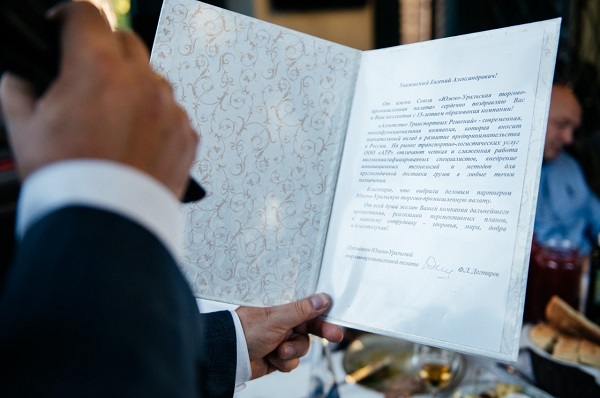 Уважаемый Евгений Александрович!
От имени Союза «Южно-Уральская торгово-
промышленная палата» сердечно поздравляю Вас
и Ваш коллектив с 15-летием образования компании!
«Агентство Транспортных Решений» - современная,
многофункциональная компания, которая вносит
значительный вклад в развитие предпринимательства
в России. На рынке транспортно-логистических услуг
ООО «АТР» отличают четкая и слаженная работа
высококвалифицированных специалистов, внедрение
инновационных технологий и методов для
круглогодичной доставки грузов в любые точки
назначения.
Благодарю, что выбрали деловым партнером
Южно-Уральскую торгово-промышленную палату.
От всей души желаю Вашей компании дальнейшего
процветания, реализации перспективных планов,
а каждому сотруднику - здоровья, мира, добра
и благополучия!
Президент Южно-Уральской
торгово-промышленной палаты Ф.Л. Дегтярев